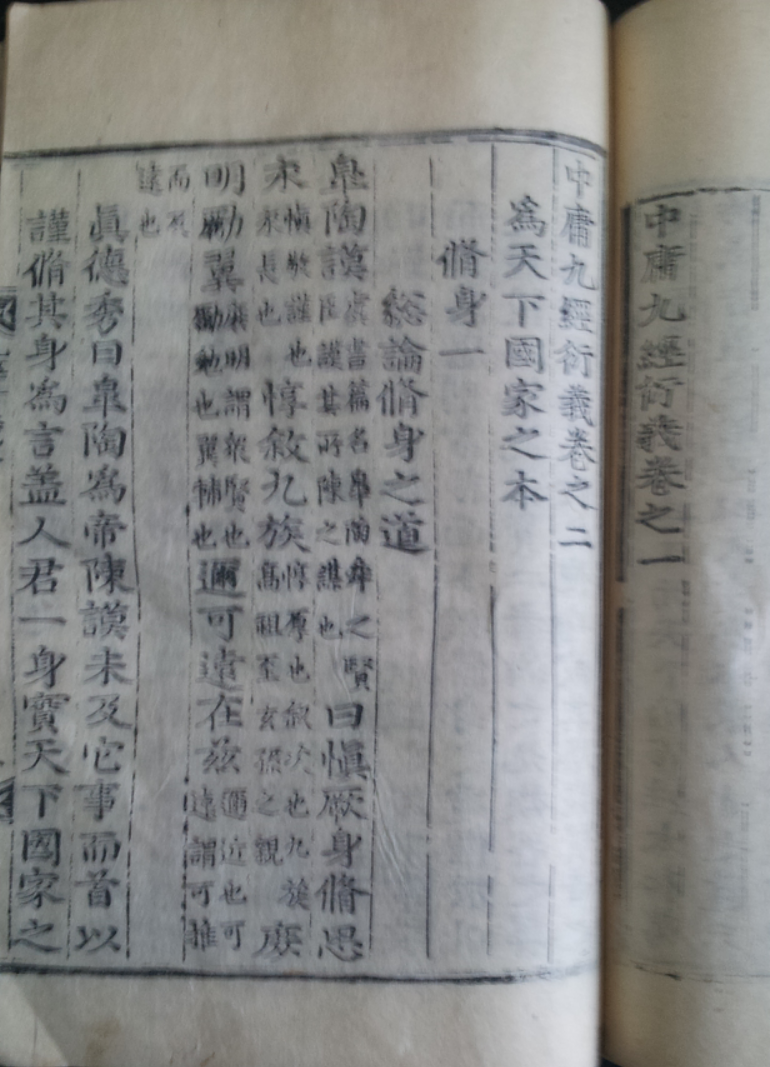 中庸九經衍義卷之一
中庸九經衍義卷之二
爲天下國家之本
脩身一
総論脩身之道
臯陶謨虞書篇名臯陶舜之賢臣謨其所陳之謀也曰愼厥身脩思
永愼敬謹也永長也惇敘九族惇厚也敘次也九族高祖至玄孫之親庶
明勵翼庶明謂衆賢也勵勉也翼輔也邇可遠在玆邇近也可遠謂可推
而及遠也
眞德秀曰臯陶爲帝陳謨未及它事而首以
謹脩其身爲言盖人君一身實天下國家之